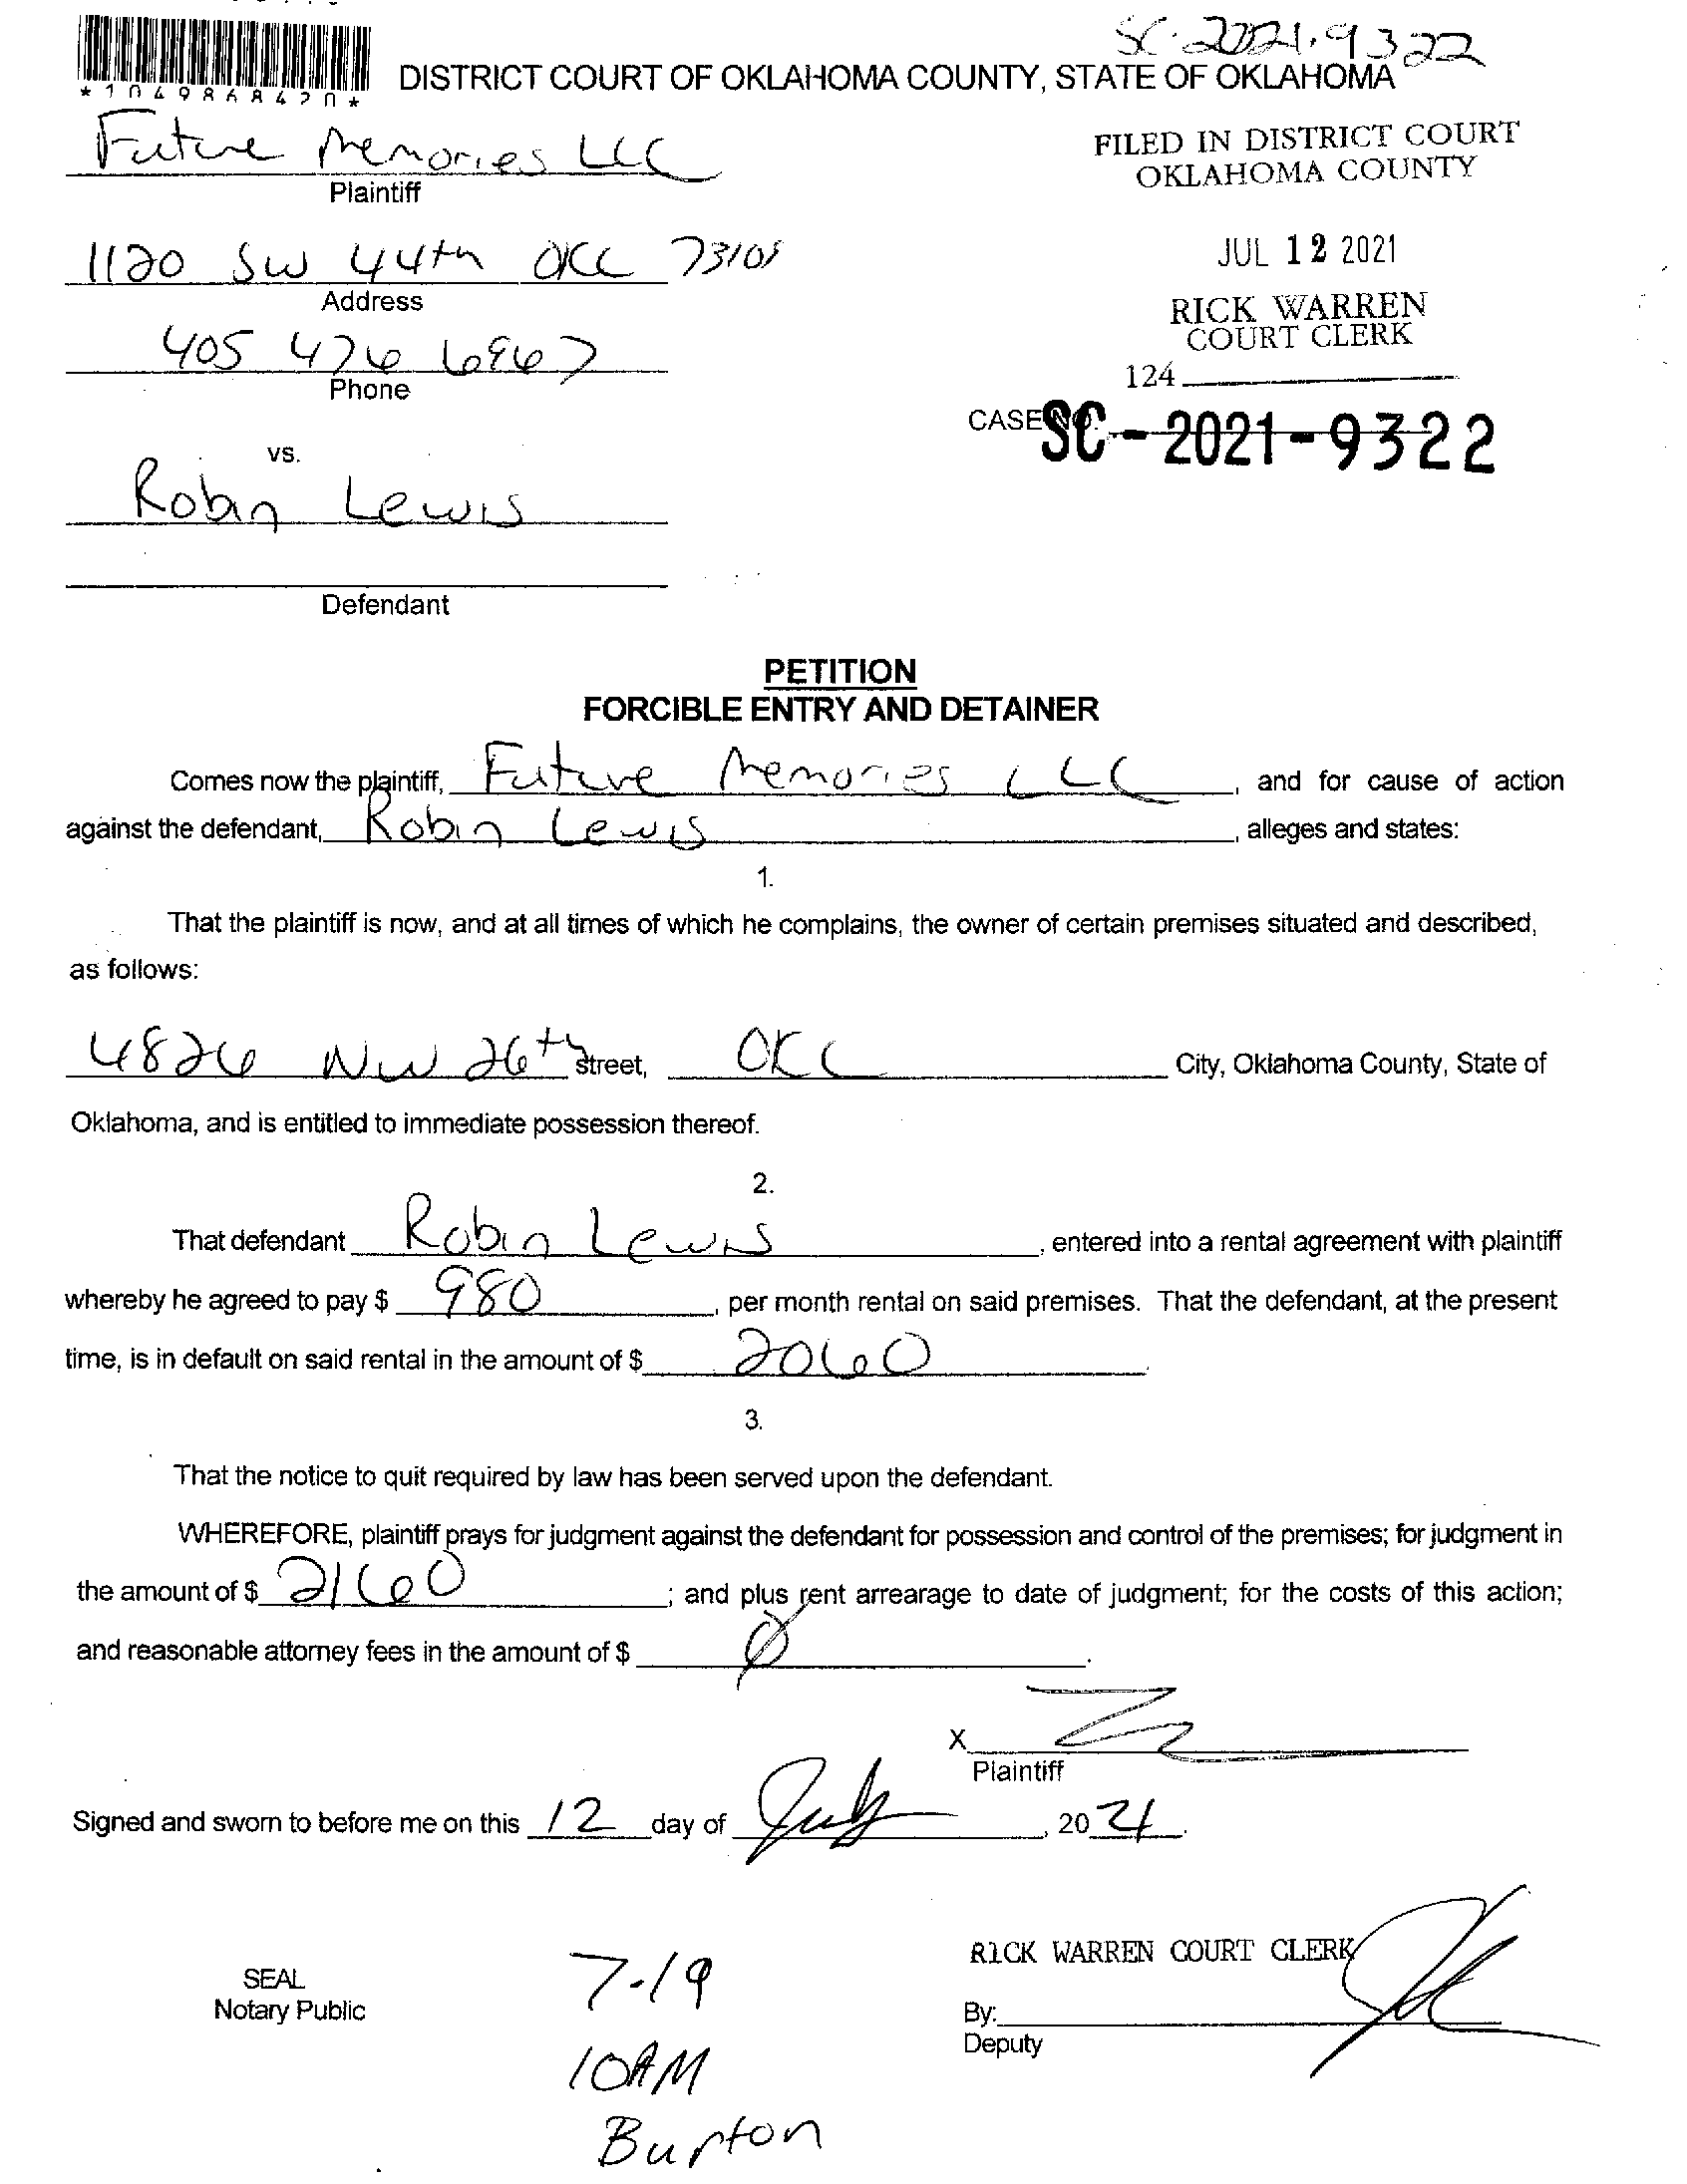 SC-2021-9322
*1049868420*
DISTRICT COURT OF OKLAHOMA COUNTY, STATE OF OKLAHOMA
Future Memories LLC
Plaintiff
FILED IN DISTRICT COURT
OKLAHOMA COUNTY
1120 SW 44th OKC 73109
Address
JUL 12 2021
RICK WARREN
COURT CLERK
405 476 6967
Phone
124
CASE NO. SC-2021-9322
vs.
Robin Lewis
Defendant
PETITION
FORCIBLE ENTRY AND DETAINER
Comes now the plaintiff, Future Memories LLC, and for cause of action
against the defendant, Robin Lewis, alleges and states:
1.
That the plaintiff is now, and at all times of which he complains, the owner of certain premises situated and described,
as follows:
4826 NW 26th Street, OKC City, Oklahoma County, State of
Oklahoma, and is entitled to immediate possession thereof.
2.
That defendant Robin Lewis, entered into a rental agreement with plaintiff
whereby he agreed to pay $ 980, per month rental on said premises. That the defendant, at the present
time, is in default on said rental in the amount of $ 2060.
3.
That the notice to quit required by law has been served upon the defendant.
WHEREFORE, plaintiff prays for judgment against the defendant for possession and control of the premises; for judgment in
the amount of $ 2160; and plus rent arrearage to date of judgment; for the costs of this action;
and reasonable attorney fees in the amount of $ Ø.
X
Plaintiff
Signed and sworn to before me on this 12 day of July, 2021.
RICK WARREN COURT CLERK
SEAL
Notary Public
7-19
By:
Deputy
10AM
Burton